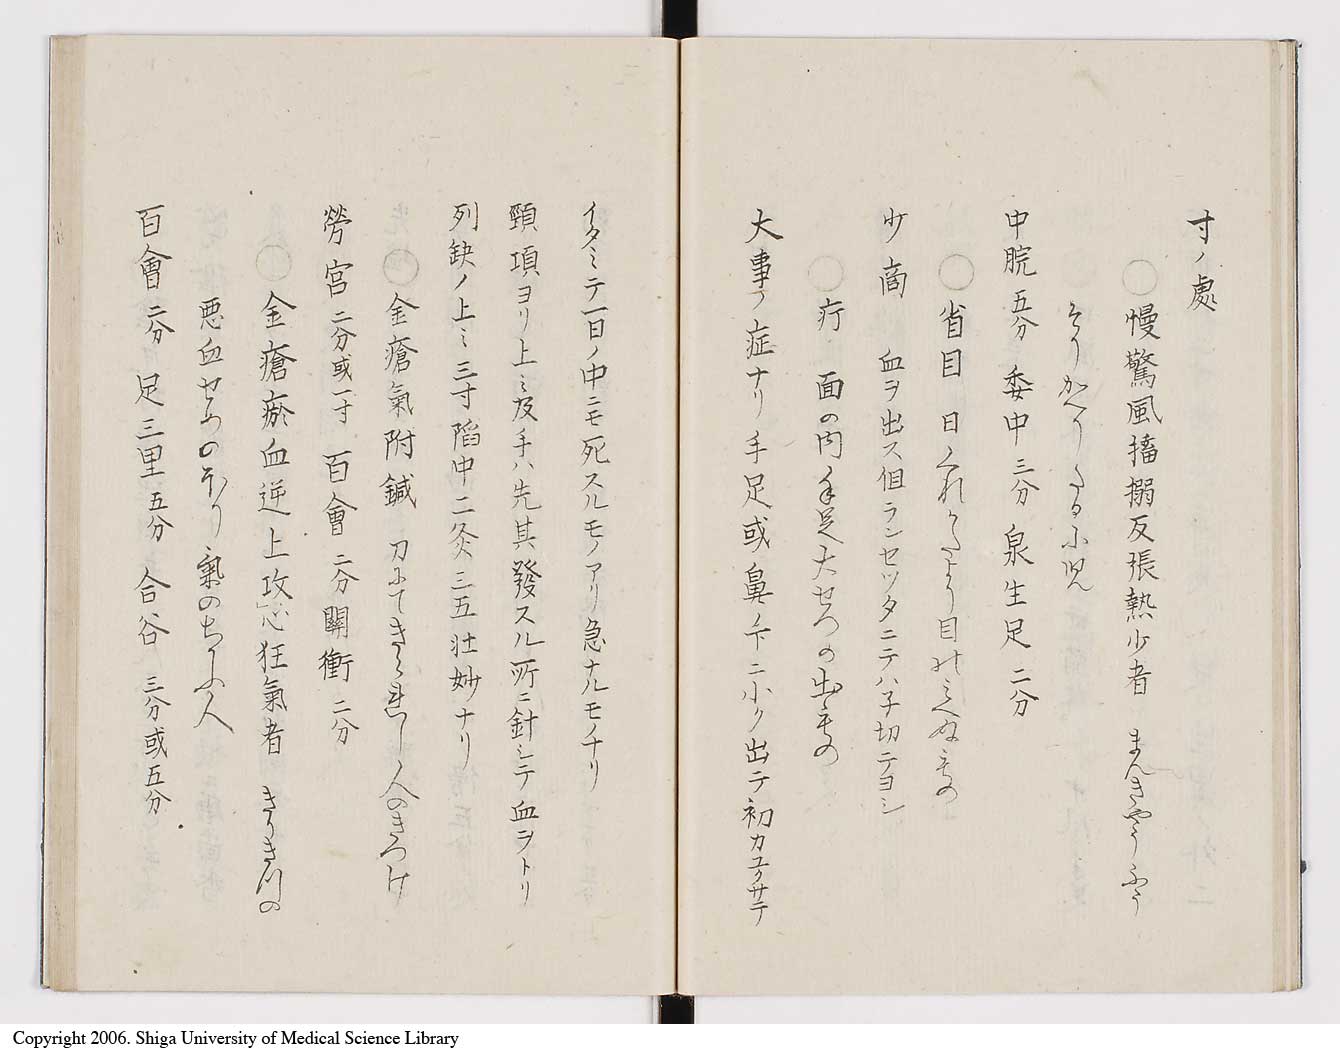 寸ノ處
○慢驚風搐搦反張熱少者 まんきやうふう
そりかへりたる小児
中脘 五分 委中 三分 泉生足 二分
○省目 日くれかたより目の見へぬもの
少商 血ヲ出ス但ランセツタニテハ子切テヨシ
○疔 面の内手足大せつの出もの
大事ノ症ナリ手足或鼻ノ下ニ小ク出テ初カユクサテ
イタミテ一日ノ中ニモ死スルモノアリ急ナルモノナリ
頸項ヨリ上ミ及手ハ先其發スル所ニ針シテ血ヲトリ
列缺ノ上ミ三寸陷中ニ灸三五壮妙ナリ
○金瘡氣附鍼 刀にてきられし人のきつけ
勞宮 二分或一寸 百會 二分 關衝 二分
○金瘡瘀血逆上攻心狂氣者 きりきつの
悪血せめのぼり氣のちかふ人
百會 二分 足三里 五分 合谷 三分或五分
Copyright 2006. Shiga University of Medical Science Library